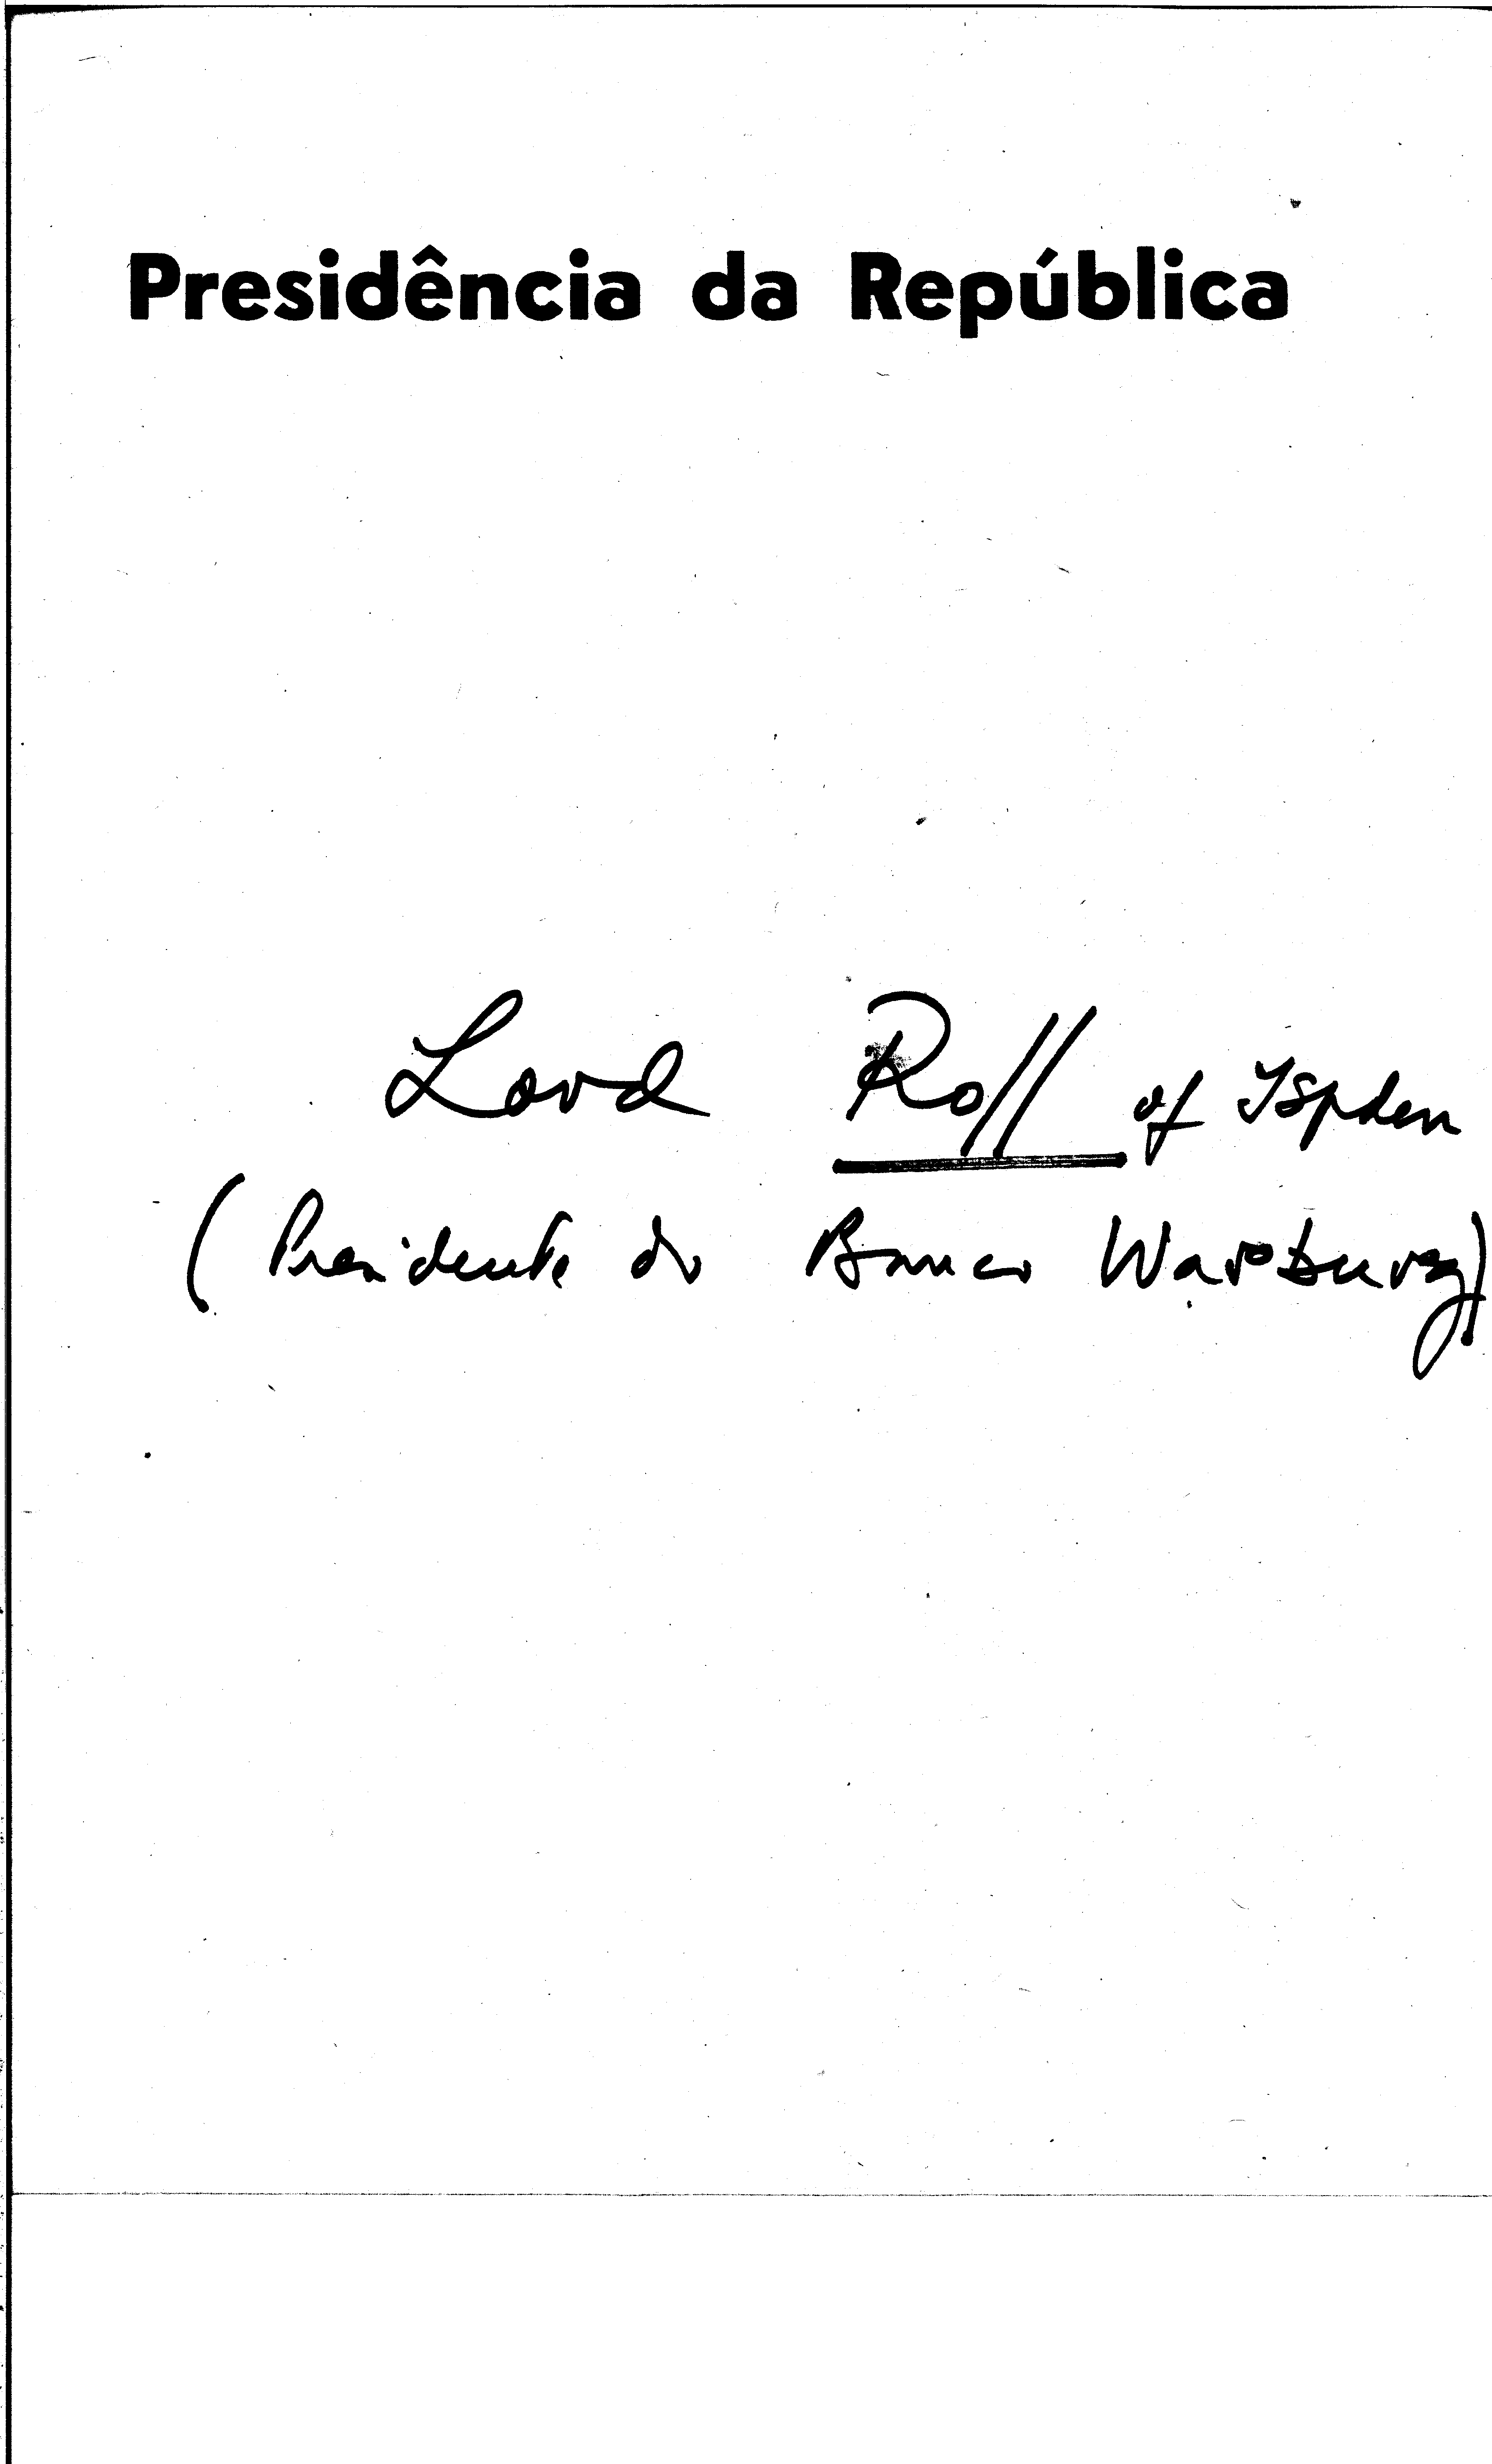 Presidência da República
Lord Roll of Ipsden
(Presidente do Banco Warburg)